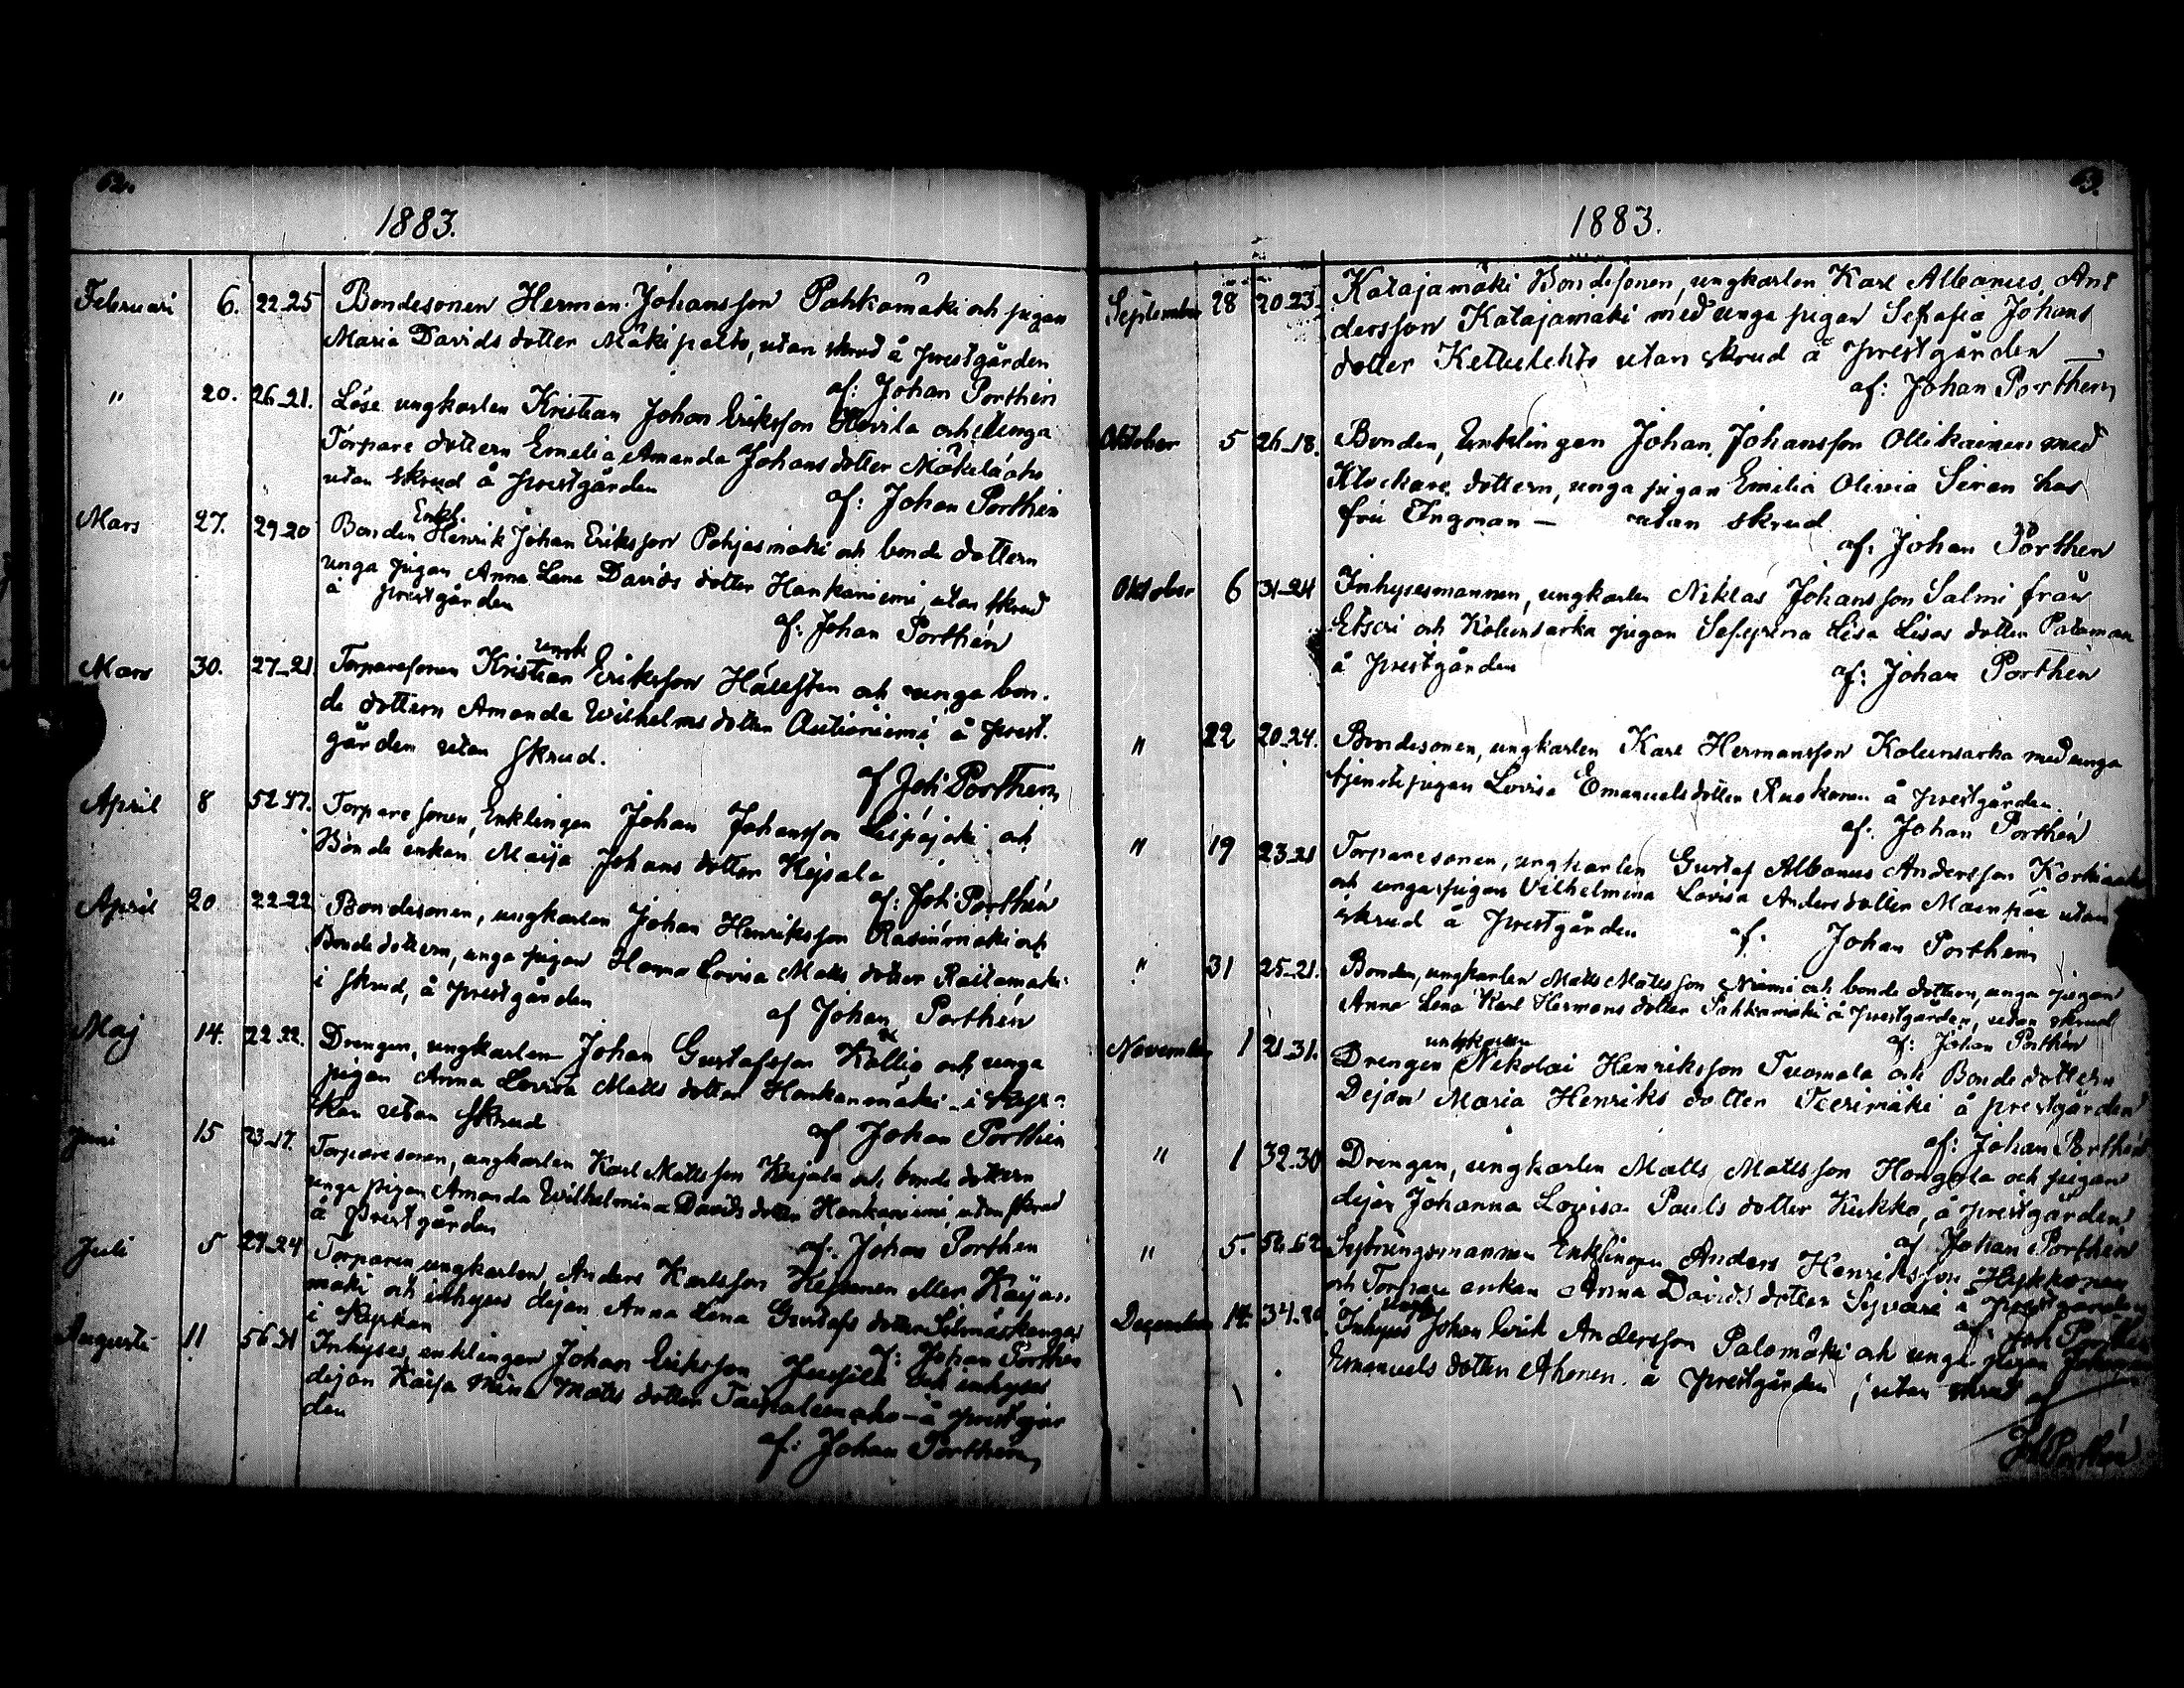 62.
1883.
Februari 6. 22-25 Bondesonen Herman Johansson Pahkamäki och pigan
Maria Davids dotter Mäkipelto, utan skrud å prestgården
af: Johan Porthén
" 20. 26-21. Löse ungkarlen Kristian Johan Eriksson och unga
Torpare dottern Emelia Amanda Johans dotter Mäkeläaho
utan skrud å prestgården
af: Johan Porthén
Mars 27. 29-20 Bonden Enkl. Henrik Johan Eriksson Pohjasmäki och bonde dottern
unga pigan Anna Lena Davids dotter Hankaniemi, utan skrud
å prestgården
af: Johan Porthén
Mars 30. 27-21 Torparesonen Kristian Eriksson Hällsten och unga bon-
de dottern Amanda Wilhelms dotter Autioniemi å prest-
gården utan skrud.
af Joh Porthén
April 8 52-47. Torpare sonen, Enklingen Johan Johansson och
Bonde enkan Maija Johans dotter Keisala
af: Joh Porthén
April 20 22-22 Bondesonen, ungkarlen Johan Henriksson Rasinmäki och
Bonde dottern, unga pigan Hanna Lovisa Matts dotter Raitamäki
i skrud, å prestgården
af Johan Porthén
Maj 14. 22-22. Drengen, ungkarlen Johan Gustafsson Kallio och unga
pigan Anna Lovisa Matts dotter Hankanmäki - i
kan utan skrud
af Johan Porthén
Juni 15 23-17. Torparesonen, ungkarlen Karl Mattsson Keisala och bonde dottern
unga pigan Amanda Wilhelmina Davids dotter Hankaniemi, utan skrud
å Prestgården
af. Johan Porthén
Juli 5 29-24 Torparen, ungkarlen, Anders Karlsson eller
mäki och inhyses dejan Anna Lena Gustafs dotter
i
af: Johan Porthén
Augusti 11 56-31 Inhyses, enklingen Johan Eriksson Jussila och inhyses
dejan Kaisa Mina Matts dotter - å prestgår
den
af: Johan Porthén
63.
1883.
September 28 20-23. Katajamäki Bondesonen, ungkarlen Karl Albanus An-
dersson Katajamäki med unga pigan Sefafia Johans
dotter Ketulehto utan skrud å prestgården
af: Johan Porthén
Oktober 5 26-18. Bonden, Enklingen Johan Johansson Ollikainen med
Klockare dottern, unga pigan Emilia Olivia Siren hos
fru Ingman - utan skrud
af: Johan Porthén
Oktober 6 31-24 Inhysesmannen, ungkarlen Niklas Johansson Salmi från
Etseri och Kolunsarka pigan Seferina Lisa Lisas dotter
å prestgården
af: Johan Porthén
" 22 20-24. Bondesonen, ungkarlen Karl Hermansson Kolunsarka med unga
tjenstepigan Lovisa Emanuels dotter Ruokonen å prestgården.
af: Johan Porthén
" 19 23-21 Torparesonen, ungkarlen Gustaf Albanus Andersson
och unga pigan Vilhelmina Lovisa Anders dotter Mäenpää utan
skrud å prestgården
af. Johan Porthén
" 31 25-21. Bonden, ungkarlen Matts Mattsson Niemi och bonde dottern, unga pigan
Anna Lena Karl Hermans dotter Pahkamäki å prestgården, utan skrud
af: Johan Porthén
November 1 21-31. Drengen ungkarlen Nikolai Henriksson Tuomala och Bonde dottern
Dejan Maria Henriks dotter Teerimäki å prestgården
af: Johan Porthén
" 1 32-30 Drengen, ungkarlen Matts Mattsson Hangela och pigan
dejan Johanna Lovisa Pauls dotter Kukko, å prestgården
af Johan Porthén
" 5. 56-62 Sytningsmannen Enklingen Anders Henriksson Hykkönen
och Torpare enkan Anna Davids dotter Syväri å prestgården
af. Joh Porthén
December 14. Inhyses Johan Erik Andersson Palomäki och unga pigan
Emanuels dotter Ahonen. å prestgården, utan skrud af
Joh Porthén